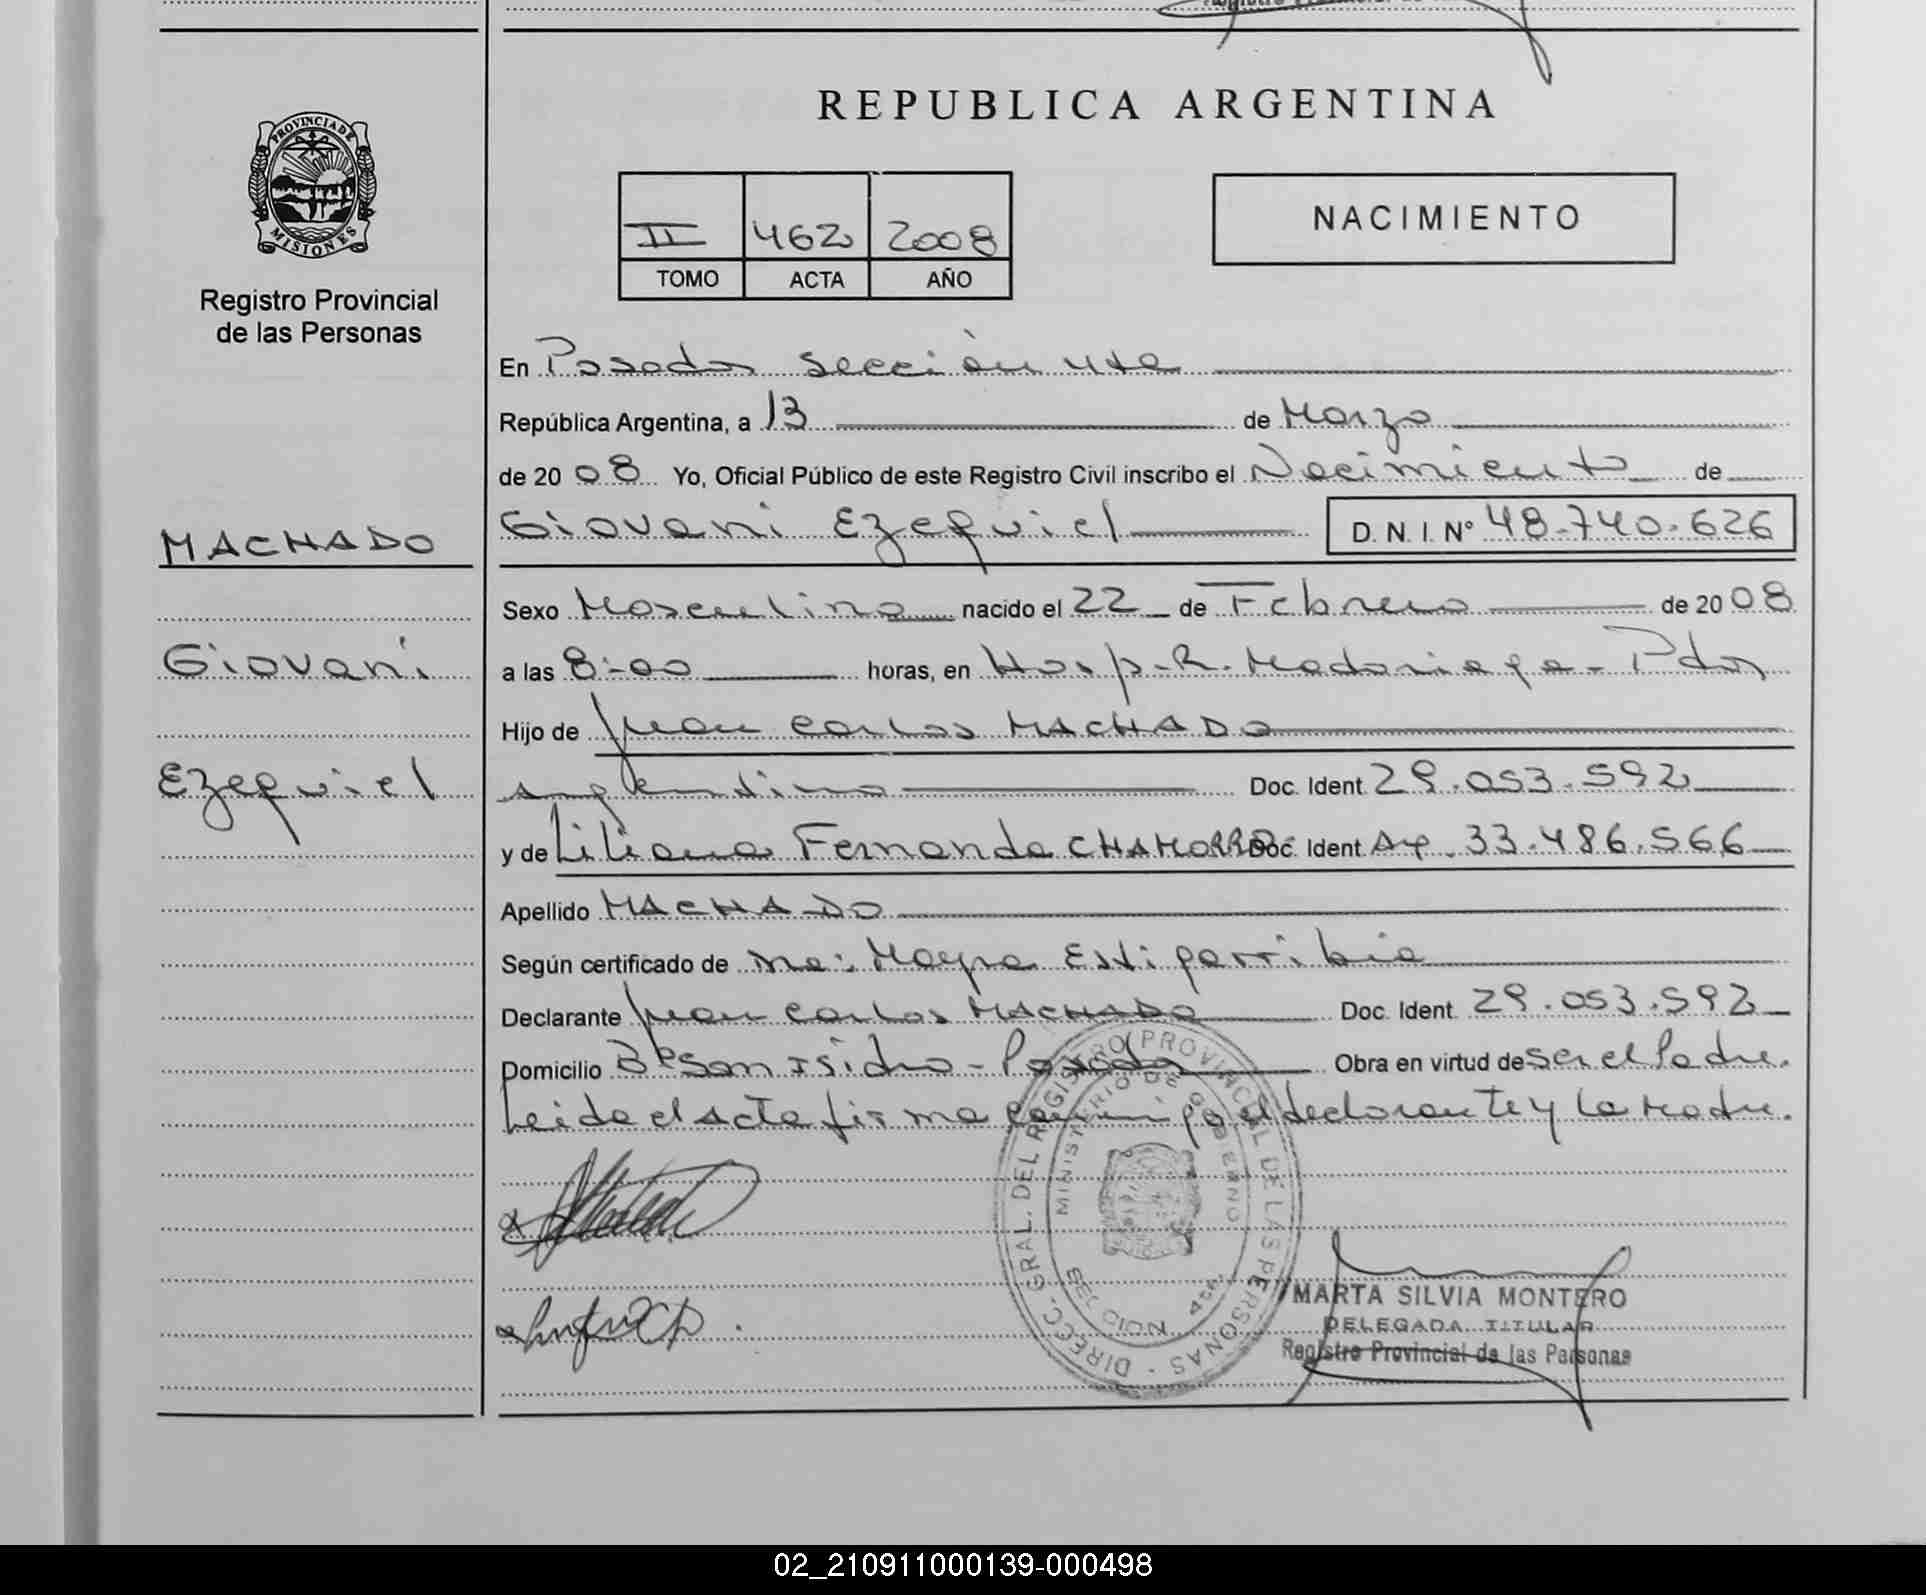 REPUBLICA ARGENTINA
PROVINCIA DE
MISIONES
Registro Provincial
de las Personas
II 462 2008
TOMO ACTA AÑO
NACIMIENTO
En Posadas sección 4ta
República Argentina, a 13 de Marzo
de 2008 Yo, Oficial Público de este Registro Civil inscribo el Nacimiento de
MACHADO
Giovani Ezequiel D. N. I. Nº 48.740.626
Sexo Masculino nacido el 22 de Febrero de 2008
Giovani
a las 8:00 horas, en Hosp. R. Madariaga - Pdas
Hijo de Juan Carlos MACHADO
Ezequiel
argentino Doc. Ident. 29.053.592
y de Liliana Fernanda CHAMORRO Doc. Ident Arg. 33.486.566
Apellido MACHADO
Según certificado de Mayra Estigarribia
Declarante Juan Carlos MACHADO Doc. Ident. 29.053.592
Domicilio Bº San Isidro - Posadas Obra en virtud de ser el Padre.
Leida el acta firma conmigo el declarante y la Madre.
DIRECC. GRAL. DEL REGISTRO PROVINCIAL DE LAS PERSONAS
MINISTERIO DE GOBIERNO
MARTA SILVIA MONTERO
DELEGADA TITULAR
Registro Provincial de las Personas
02_210911000139-000498